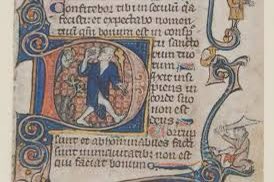 Confitebor tibi in seculũ q̃a
fecisti et expectabo nomen
tuũ qm̃ bonum est in consp̃
tu sancto
rum tuo
rum
ixit insi
piens in
corde suo
non est
deus Corrupti
sunt et abhominabiles facti
sunt in iniquitatibus non est
qui faciat bonum